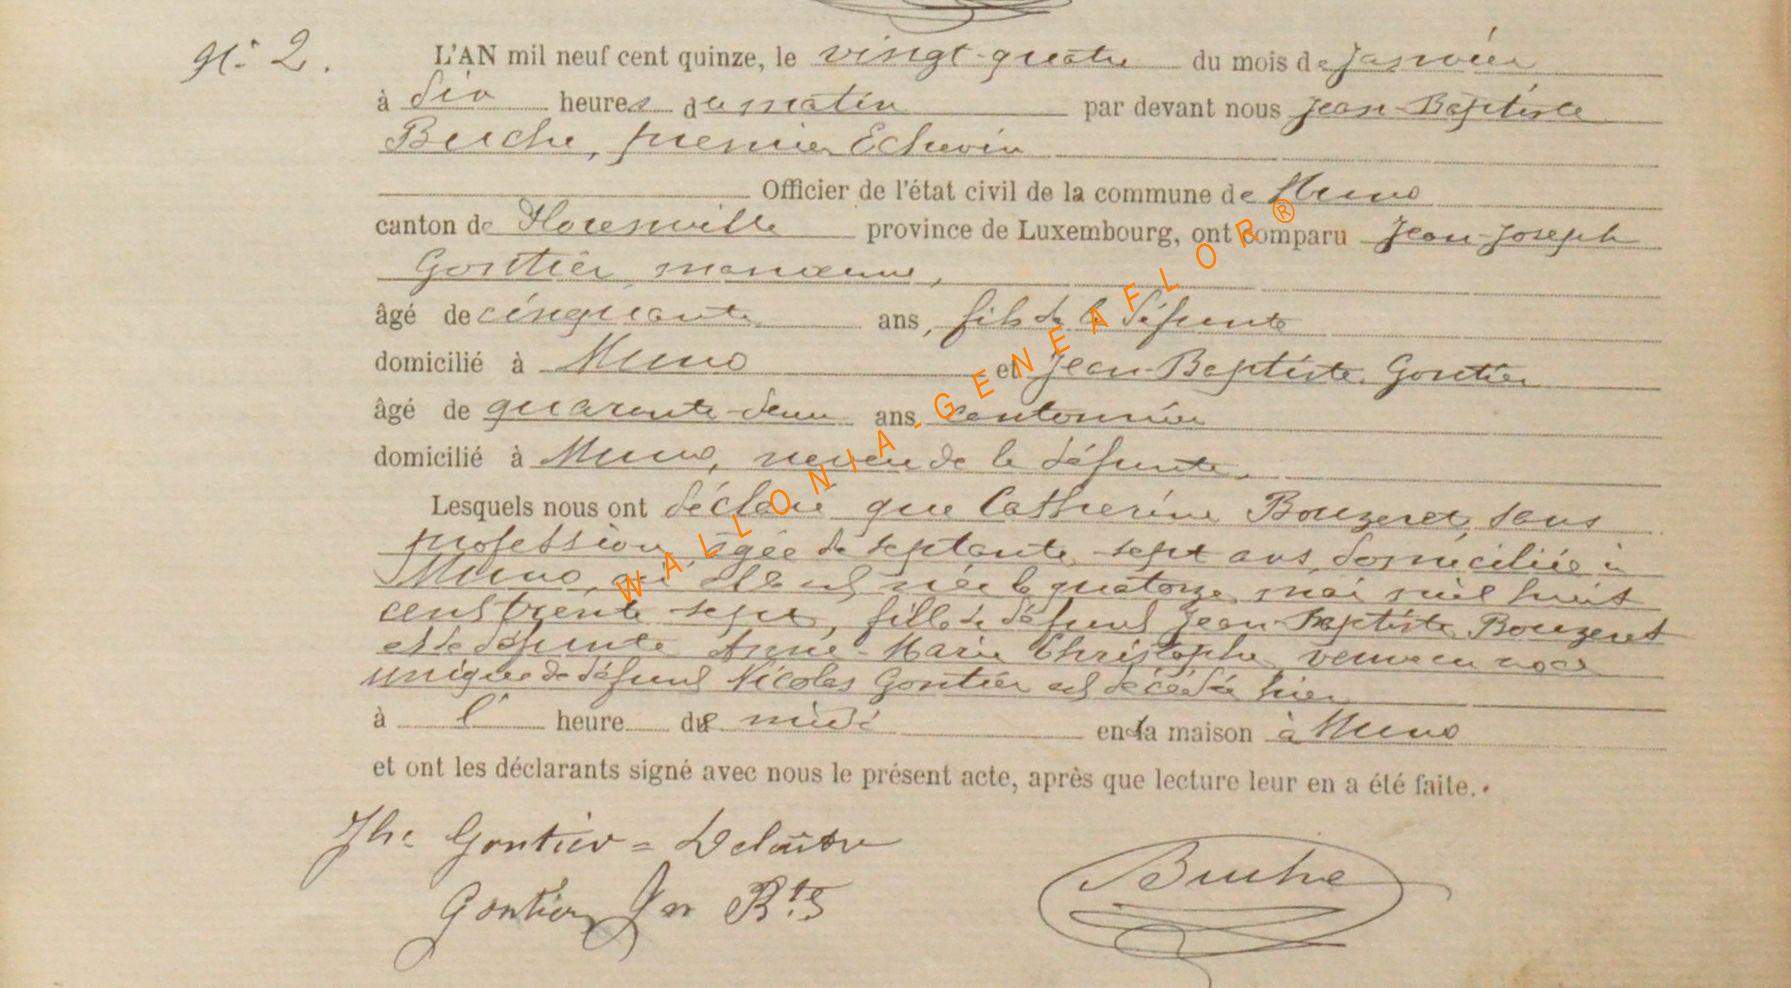 N° 2.
L'AN mil neuf cent quinze, le vingt-quatre du mois de Janvier
à dix heures du matin par devant nous Jean-Baptiste
Buche, premier Echevin
Officier de l'état civil de la commune de Muno
canton de Florenville province de Luxembourg, ont comparu Jean-Joseph
Gontier, manœuvre,
âgé de cinquante ans, fils de la défunte
domicilié à Muno et Jean-Baptiste Gontier
âgé de quarante-deux ans cantonnier
domicilié à Muno, neveu de la défunte.
Lesquels nous ont déclaré que Catherine Bouzeret, sans
profession, âgée de septante-sept ans, domiciliée à
Muno, où elle est née le quatorze mai mil huit
cent trente-sept, fille de défunt Jean-Baptiste Bouzeret
et de défunte Anne-Marie Christophe, veuve en noce
unique de défunt Nicolas Gontier est décédée hier
à l' heure de midi en la maison à Muno
et ont les déclarants signé avec nous le présent acte, après que lecture leur en a été faite.
Jh. Gontier=Delaître
Gontier Jn Bte
Buche
WALLONIA-GENEAFLOR®